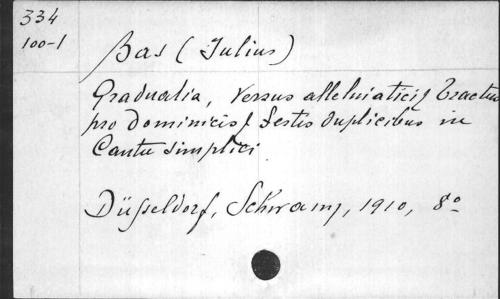 334
100-1
Bas (Julius)
Gradualia, Versus alleluiatici & Tractus
pro Dominicis & Festis duplicibus in
Cantu simplici
Düsseldorf, Schwann, 1910, 8º